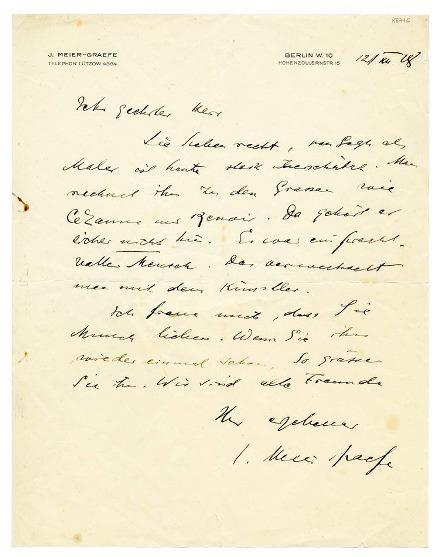 K5716
J. MEIER-GRAEFE
TELEPHON LÜTZOW 4564
BERLIN W. 10
HOHENZOLLERNSTR 15
12/XII 28
Sehr geehrter Herr
Sie haben recht, van Gogh als
Maler ist heute stark überschätzt. Man
rechnet ihn zu den Grossen wie
Cézanne und Renoir. Da gehört er
sicher nicht hin. Es war ein pracht-
voller Mensch. Das verwechselt
man mit dem Künstler.
Ich freue mich, dass Sie
Munch lieben. Wenn Sie ihn
wieder einmal sehen, so grüssen
Sie ihn. Wir sind alte Freunde
Ihr ergebener
J. Meier Graefe